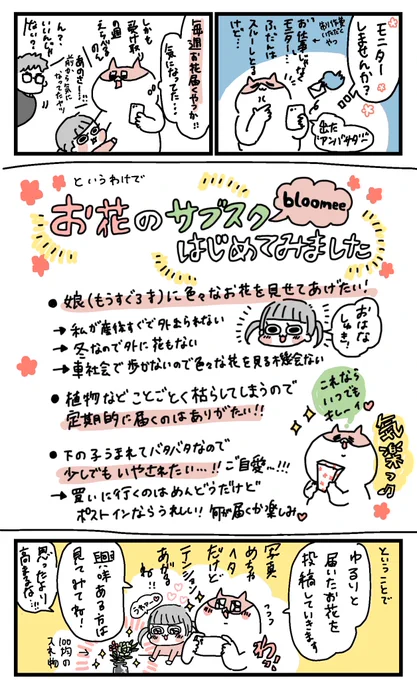 モニター
しませんか?
お仕事じゃなく
モニター…
ふだんは
スルーしとる
けど…
出た
"アンバサダー"
毎週お花届くやつか!!
気になってた…
しかも
受け取り
の週
えらべる
のん
あのさー…!!
前から気に
なってたやつ
ん?
いいんじゃ
ない?
というわけで
お花のサブスク
bloomee
はじめてみました
● 娘(もうすぐ3才)に色々なお花を見せてあげたい!
→ 私が産後すぐで外出られない
→ 冬なので外に花もない
→ 車社会で歩かないので色々な花を見る機会ない
おはな
しゅき?
● 植物などことごとく枯らしてしまうので
定期的に届くのはありがたい!!
これなら
いつでも
キレーイ
● 下の子うまれてバタバタなので
少しでもいやされたい…!! ご自愛…!!!
→ 買いに行くのはめんどうだけど
ポストインならうれしい! 何が届くか楽しみ
気楽っっ
ということで
ゆるりと
届いたお花を
投稿していきます
写真
めちゃ
ヘタ
だけど
テンション
あがる
ね!!
わっ
うわァー
興味ある方は
見てみてね!
思ったより
高まる…!!!
100均の
入れ物